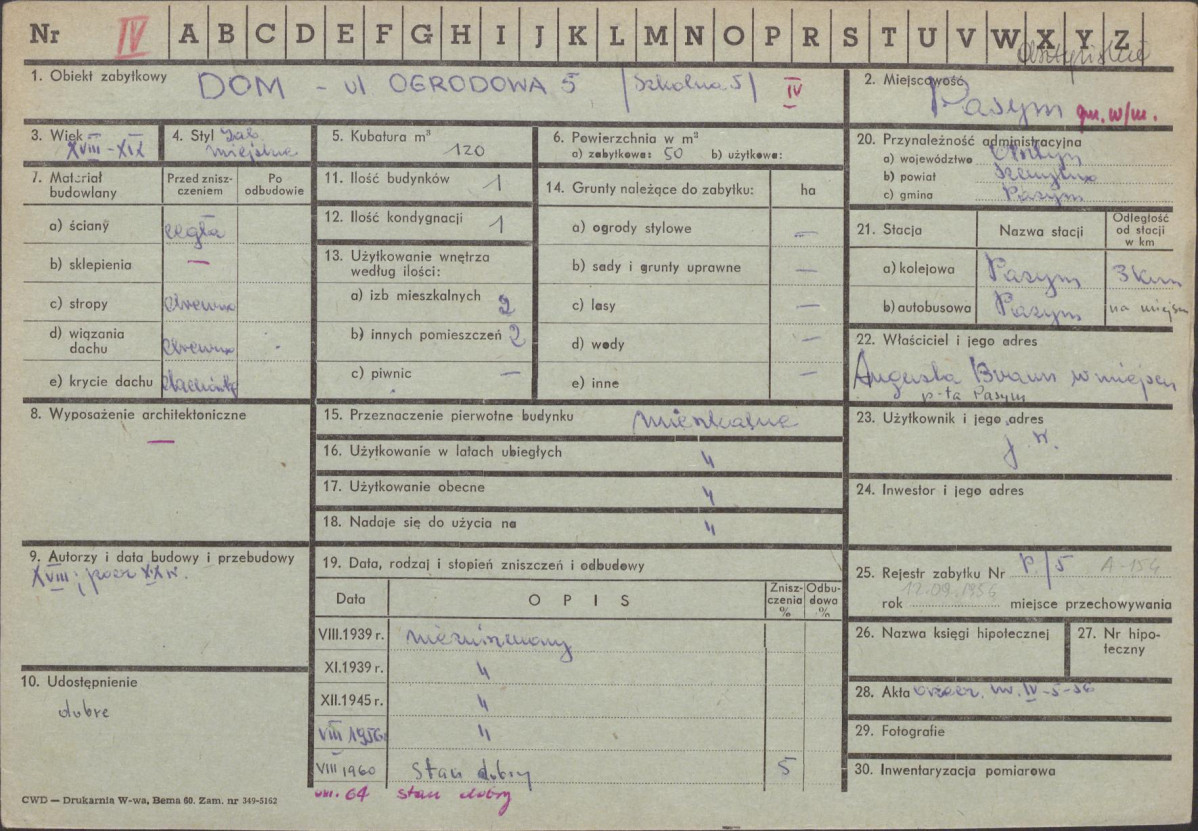 Nr IV A B C D E F G H I J K L M N O P R S T U V W X Y Z
1. Obiekt zabytkowy DOM - ul OGRODOWA 5 /Szkolna 5/ IV
2. Miejscowość Pasym gm. w/m.
3. Wiek XVIII - XIX
4. Styl
miejskie
5. Kubatura m³ 120
6. Powierzchnia w m²
a) zabytkowa: 50 b) użytkowa:
7. Materiał budowlany
Przed zniszczeniem
Po odbudowie
a) ściany cegła
b) sklepienia —
c) stropy drewn
d) wiązania dachu drewn
e) krycie dachu dachówka
8. Wyposażenie architektoniczne
—
9. Autorzy i data budowy i przebudowy
XVIII; pocz XIX w.
10. Udostępnienie
dobre
11. Ilość budynków 1
12. Ilość kondygnacji 1
13. Użytkowanie wnętrza według ilości:
a) izb mieszkalnych 2
b) innych pomieszczeń 2
c) piwnic —
14. Grunty należące do zabytku: ha
a) ogrody stylowe —
b) sady i grunty uprawne —
c) lasy —
d) wody —
e) inne —
15. Przeznaczenie pierwotne budynku mieszkalne
16. Użytkowanie w latach ubiegłych "
17. Użytkowanie obecne "
18. Nadaje się do użycia na "
19. Data, rodzaj i stopień zniszczeń i odbudowy
Data OPIS Zniszczenia % Odbudowa %
VIII.1939 r. niezniszczony
XI.1939 r. "
XII.1945 r. "
VIII 1956 "
VIII 1960 stan dobry 5
VIII. 64 stan dobry
20. Przynależność administracyjna
a) województwo Olsztyn
b) powiat Szczytno
c) gmina Pasym
21. Stacja Nazwa stacji Odległość od stacji w km
a) kolejowa Pasym 3 km
b) autobusowa Pasym na miejscu
22. Właściciel i jego adres
Augusta Braun w miejscu
p-ta Pasym
23. Użytkownik i jego adres
j. w.
24. Inwestor i jego adres
25. Rejestr zabytku Nr P/5 A-154
rok 12.09.1956 miejsce przechowywania
26. Nazwa księgi hipotecznej
27. Nr hipoteczny
28. Akta orzecz. nr. IV-5-56
29. Fotografie
30. Inwentaryzacja pomiarowa
CWD — Drukarnia W-wa, Bema 60. Zam. nr 349-5162